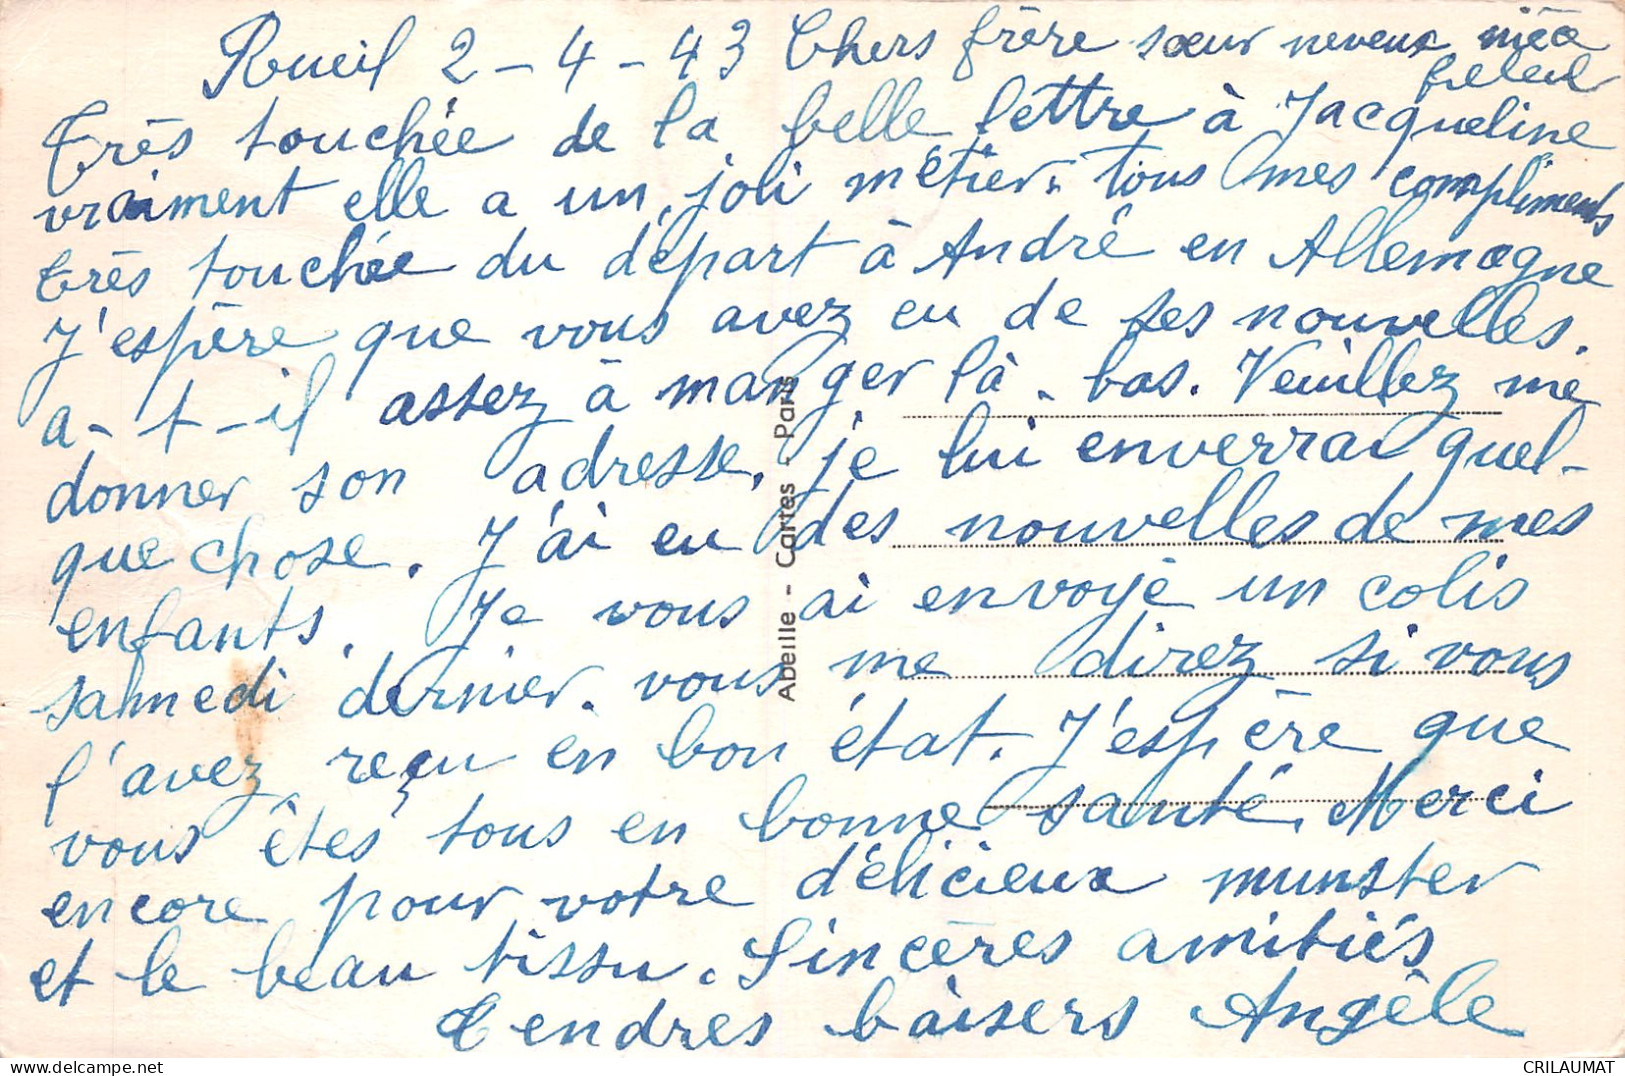 Rueil 2-4-43 Chers frère sœur neveux nièce
filleul
Très touchée de la belle lettre à Jacqueline
vraiment elle a un joli métier. tous mes compliments
très touchée du départ à André en Allemagne
J'espère que vous avez eu de ses nouvelles.
a-t-il assez à manger là-bas. Veuillez me
donner son adresse, je lui enverrai quel-
que chose. J'ai eu des nouvelles de mes
enfants. Je vous ai envoyé un colis
samedi dernier. vous me direz si vous
l'avez reçu en bon état. J'espère que
vous êtes tous en bonne santé, Merci
encore pour votre délicieux munster
et le beau tissu. Sincères amitiés
tendres baisers Angèle
Abeille - Cartes - Paris
CRILAUMAT